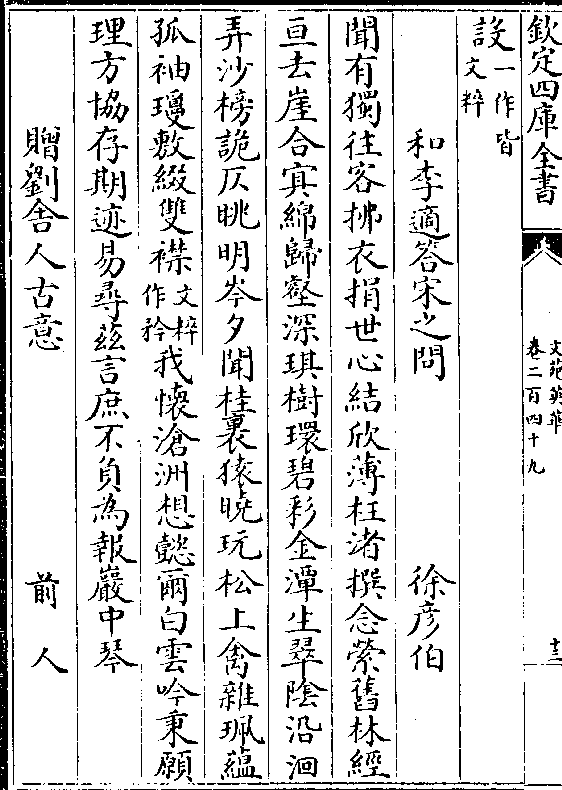 欽定四庫全書
文苑英華
卷二百四十九
十三
設一作皆
文粹
和李適答宋之問 徐彦伯
聞有獨往客拂衣捐世心結欣薄枉渚撰念縈舊林經
亘去崖合㝠綿歸壑深琪樹環碧彩金潭生翠陰沿洄
弄沙榜詭仄眺明岑夕聞桂裏猿曉玩松上禽雜珮蘊
孤袖瓊敷綴雙襟文粹作衿我懷滄洲想懿爾白雲吟秉願
理方協存期迹易尋兹言庶不負為報巖中琴
贈劉舍人古意 前人